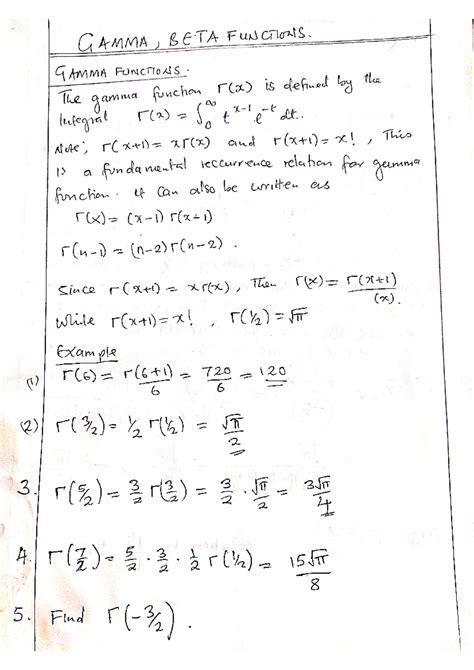 GAMMA, BETA FUNCTIONS.
GAMMA FUNCTIONS.
The gamma function Γ(x) is defined by the
Integral Γ(x) = ∫₀^∞ t^(x-1) e^(-t) dt.
Note; Γ(x+1) = xΓ(x) and Γ(x+1) = x! , This
is a fundamental reccurrence relation for gamma
function. It can also be written as
Γ(x) = (x-1) Γ(x-1)
Γ(n-1) = (n-2)Γ(n-2).
Since Γ(x+1) = xΓ(x), Then Γ(x) = Γ(x+1)/(x).
While Γ(x+1) = x! , Γ(1/2) = √π
Example
(1) Γ(6) = Γ(6+1)/6 = 720/6 = 120
(2) Γ(3/2) = 1/2 Γ(1/2) = √π/2
3. Γ(5/2) = 3/2 Γ(3/2) = 3/2 · √π/2 = 3√π/4
4. Γ(7/2) = 5/2 · 3/2 · 1/2 Γ(1/2) = 15√π/8
5. Find Γ(-3/2).